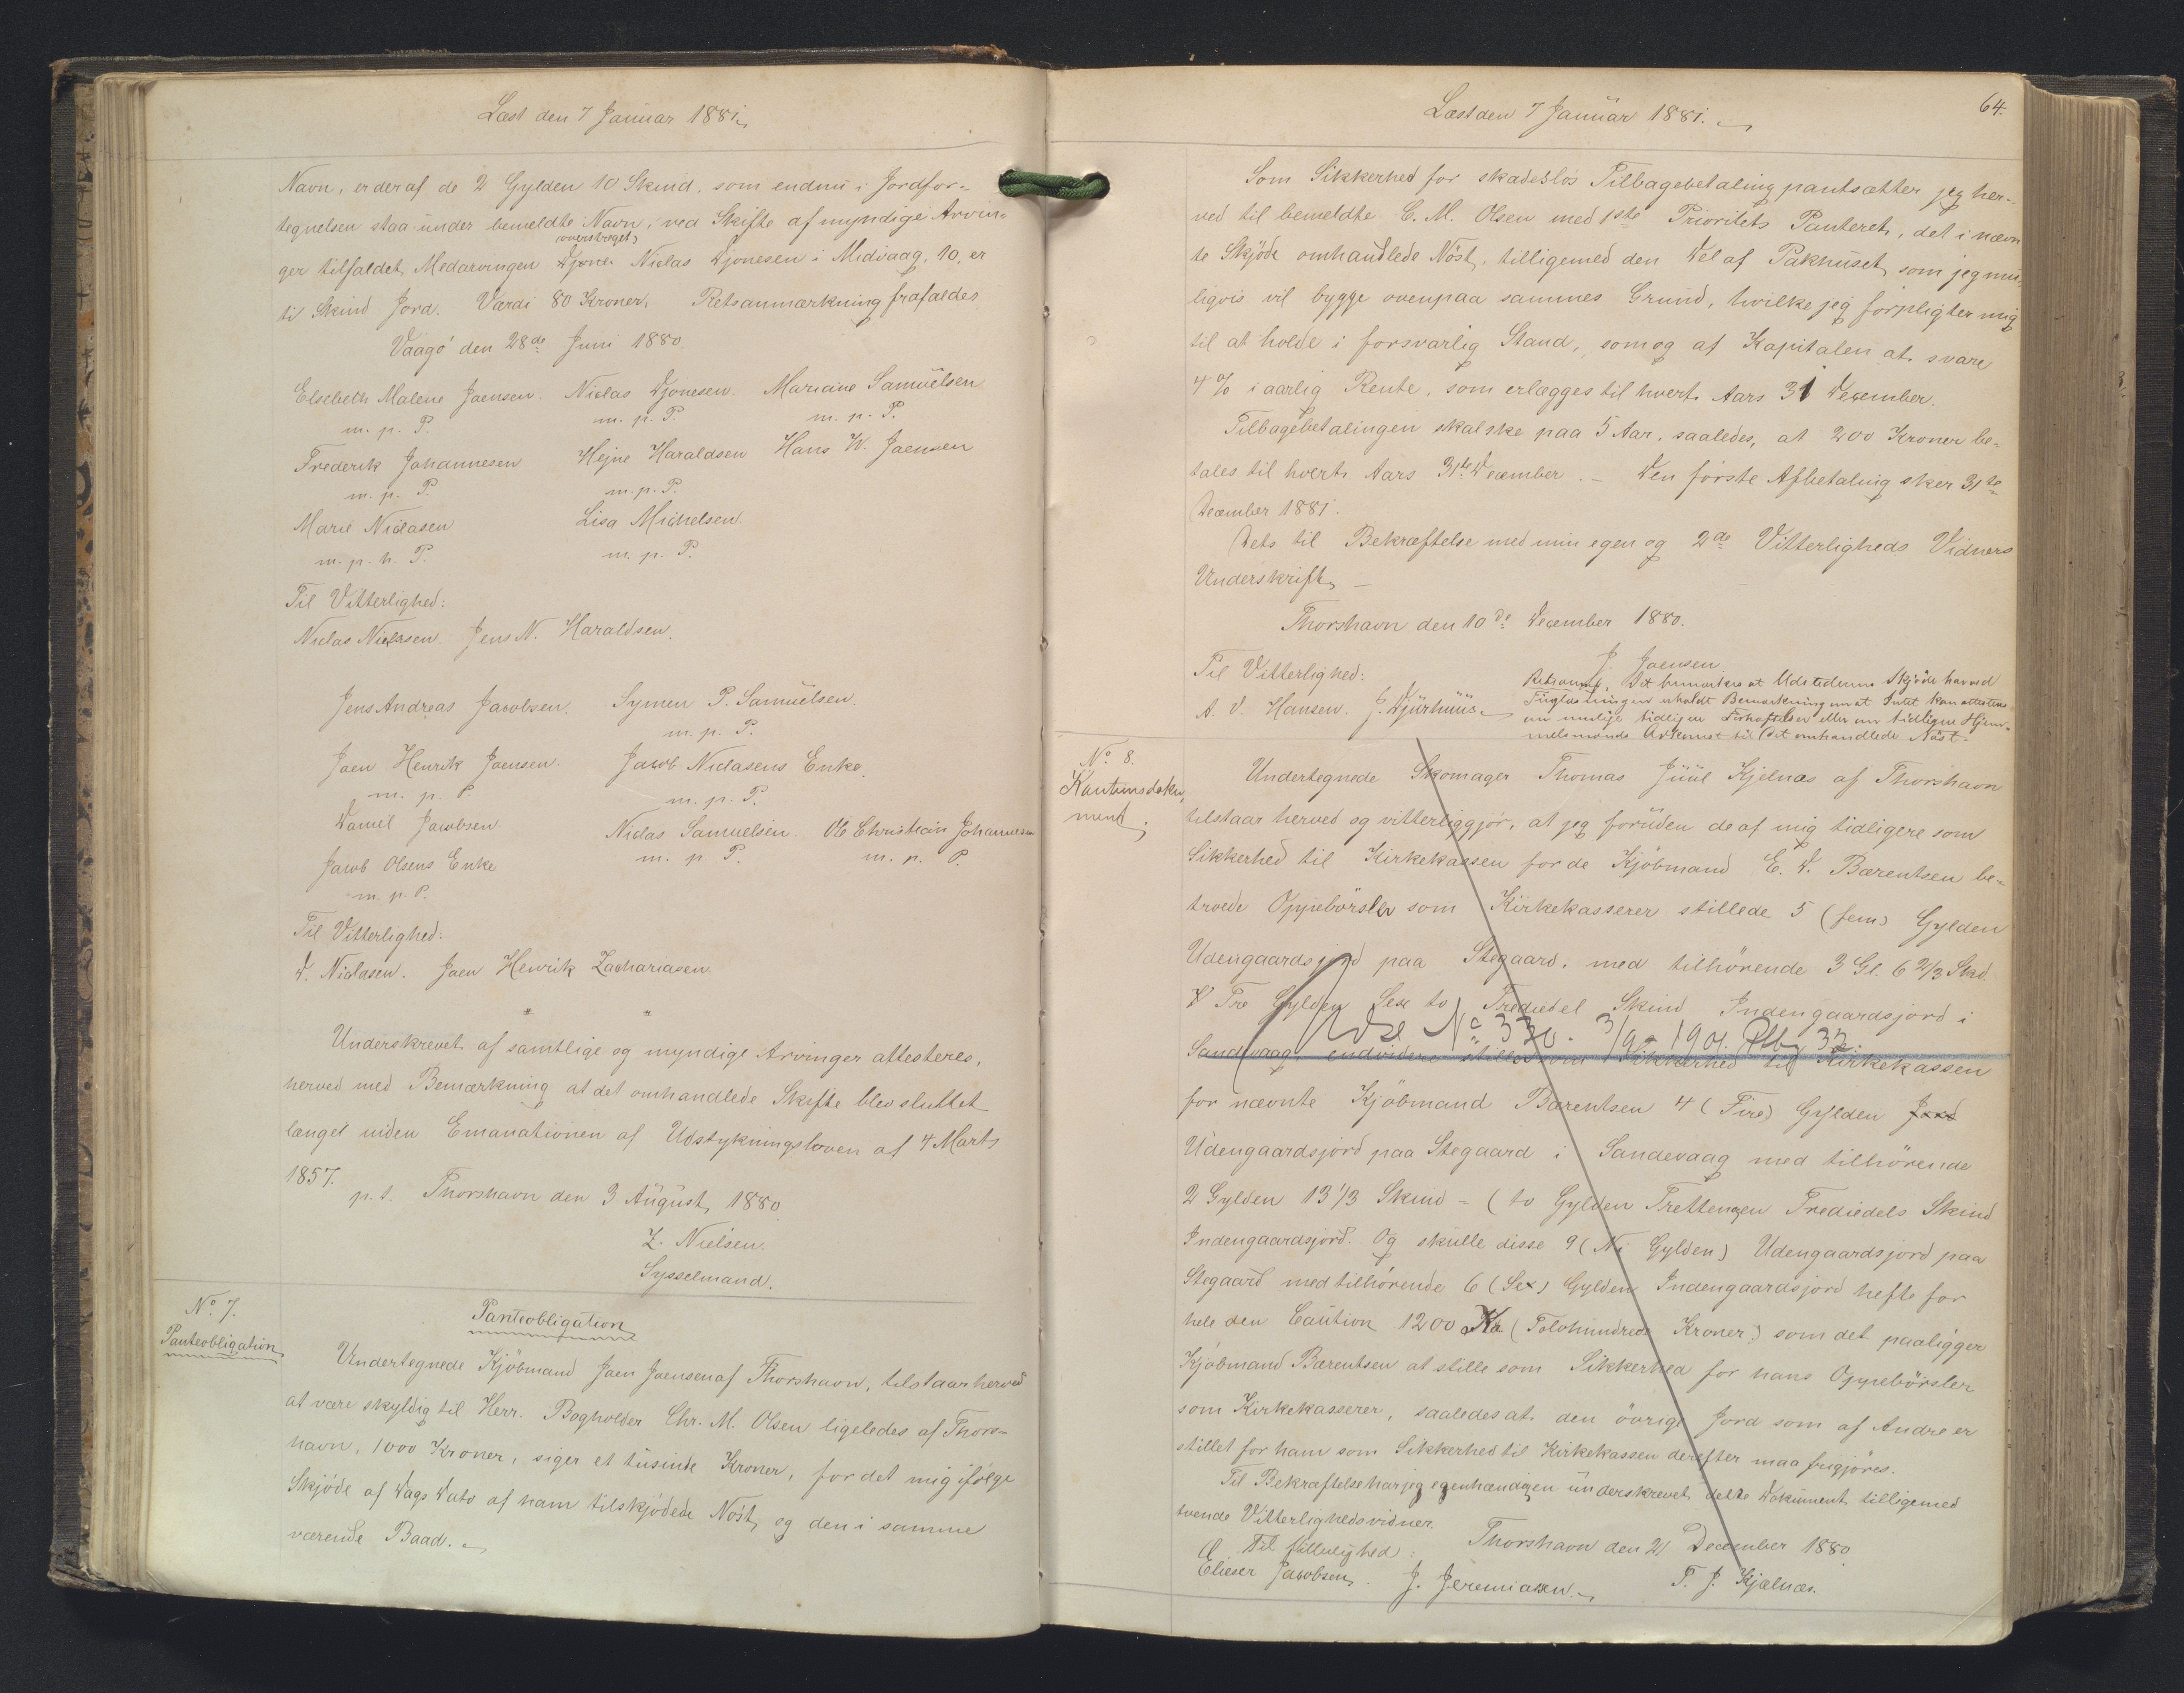 Læst den 7 Januar 1881.
Navn, er deraf de 2 Gylden 10 Skind, som endnu i Jordfor-
tegnelsen staa under bemeldte Navn, ved Skifte af myndige Arvin-
(overstreget)
ger tilfaldet Medarvingen Djone Niclas Djonesen i Midvaag, 10, er
ti Skind Jord. Værdi 80 Kroner. Retsanmærkning frafaldes
Vaagö den 28de Juni 1880.
Elsebeth Malene Joensen. Niclas Djonesen. Mariane Samuelsen
m. p. P. m. p. P. m. p. P.
Frederik Johannesen Hejne Haraldsen Hans W. Joensen
m. p. P. m. p. P.
Marie Niclasen Lisa Michelsen.
m. p. h. P. m. p. P.
Til Vitterlighed:
Niclas Niclasen. Jens N. Haraldsen.
Jens Andreas Jacobsen. Symen P. Samuelsen.
m. p. P.
Joen Henrik Joensen. Jacob Niclasens Enke.
m. p. P. m. p. P.
Daniel Jacobsen Niclas Samuelsen. Ole Christian Johannesen
m. p. P. m. p. P.
Jacob Olsens Enke
m. p. P.
Til Vitterlighed:
D. Niclasen. Joen Henrik Zachariasen.
" "
Underskrevet af samtlige og myndige Arvinger attesteres,
herved med Bemærkning at det omhandlede Skifte blev sluttet
længst inden Emanationen af Udstykningsloven af 4 Marts
1857.
p. t. Thorshavn den 3 August 1880
Z. Nielsen.
Sysselmand.
No. 7.
Panteobligation
Panteobligation
Undertegnede Kjöbmand Joen Joensen af Thorshavn, tilstaar herved
at være skyldig til Herr. Bogholder Chr. M. Olsen ligeledes af Thors-
havn, 1000 Kroner, siger et tusinde Kroner, for det mig ifölge
Skjöde af Dags Dato af ham tilskjödede Nöst, og den i samme
værende Baad.
Læst den 7 Januar 1881.
64.
Som Sikkerhed for skadeslös Tilbagebetaling pantsætter jeg her-
ved til bemeldte C. M. Olsen med 1ste Prioritets Panteret, det i nævn
te Skjöde omhandlede Nöst, tilligemed den Del af Pakhuset, som jeg mu-
ligvis vil bygge ovenpaa sammes Grund, hvilke jeg forpligter mig
til at holde i forsvarlig Stand, som og af Kapitalen at svare
4 % i aarlig Rente, som erlægges til hvert Aars 31 December.
Tilbagebetalingen skal ske paa 5 Aar, saaledes, at 200 Kroner be-
tales til hvert Aars 31te December. – Den förste Afbetaling sker 31te
December 1881.
Dets til Bekræftelse med min egen og 2de Vitterligheds Vidners
Underskrift. –
Thorshavn den 10de December 1880.
J. Joensen.
Til Vitterlighed:
A. V. Hansen. J. Djurhuus.
Retsanm. Det bemærkes at Udstederens Skjöde har ved
Tinglæsningen erholdt Bemærkning om at Intet kan attesteres
om mulige tidligere Forhæftelser eller om tidligere Hjem-
melsmands Adkomst til det omhandlede Nöst.
No. 8.
Kautionsdoku-
ment.
Undertegnede Skomager Thomas Juul Kjelnæs af Thorshavn
tilstaar herved og vitterliggjör, at jeg foruden de af mig tidligere som
Sikkerhed til Kirkekassen for de Kjöbmand E. D. Bærentsen be-
troede Oppebörsler som Kirkekasserer stillede 5 (fem) Gylden
Udengaardsjord paa Stegaard, med tilhörende 3 Gl. 6 2/3 Skd.
Tre Gylden Sex to Trediedel Skind Indengaardsjord i
Udsl No 330. 3/9 - 1901. Ptbg 32.
Sandevaag, endvidere stiller som Sikkerhed til Kirkekassen
for nævnte Kjöbmand Bærentsen 4 (Fire) Gylden Jord
Udengaardsjord paa Stegaard i Sandevaag med tilhörende
2 Gylden 13 1/3 Skind = (to Gylden Tretten en Trediedels Skind
Indengaardsjord. Og skulle disse 9 (Ni Gylden) Udengaardsjord paa
Stegaard med tilhörende 6 (Sex) Gylden Indengaardsjord hefte for
hele den Caution 1200 Kr (Tolvhundrede Kroner) som det paaligger
Kjöbmand Bærentsen at stille som Sikkerhed for hans Oppebörsler
som Kirkekasserer, saaledes at den övrige Jord som af Andre er
stillet for ham som Sikkerhed til Kirkekassen derefter maa frigjöres.
Til Bekræftelse har jeg egenhændigen underskrevet dette Dokument tilligemed
tvende Vitterlighedsvidner.
Thorshavn den 21 December 1880
Til Vitterlighed:
Elieser Jacobsen. J. Jeremiasen. T. J. Kjælnæs.